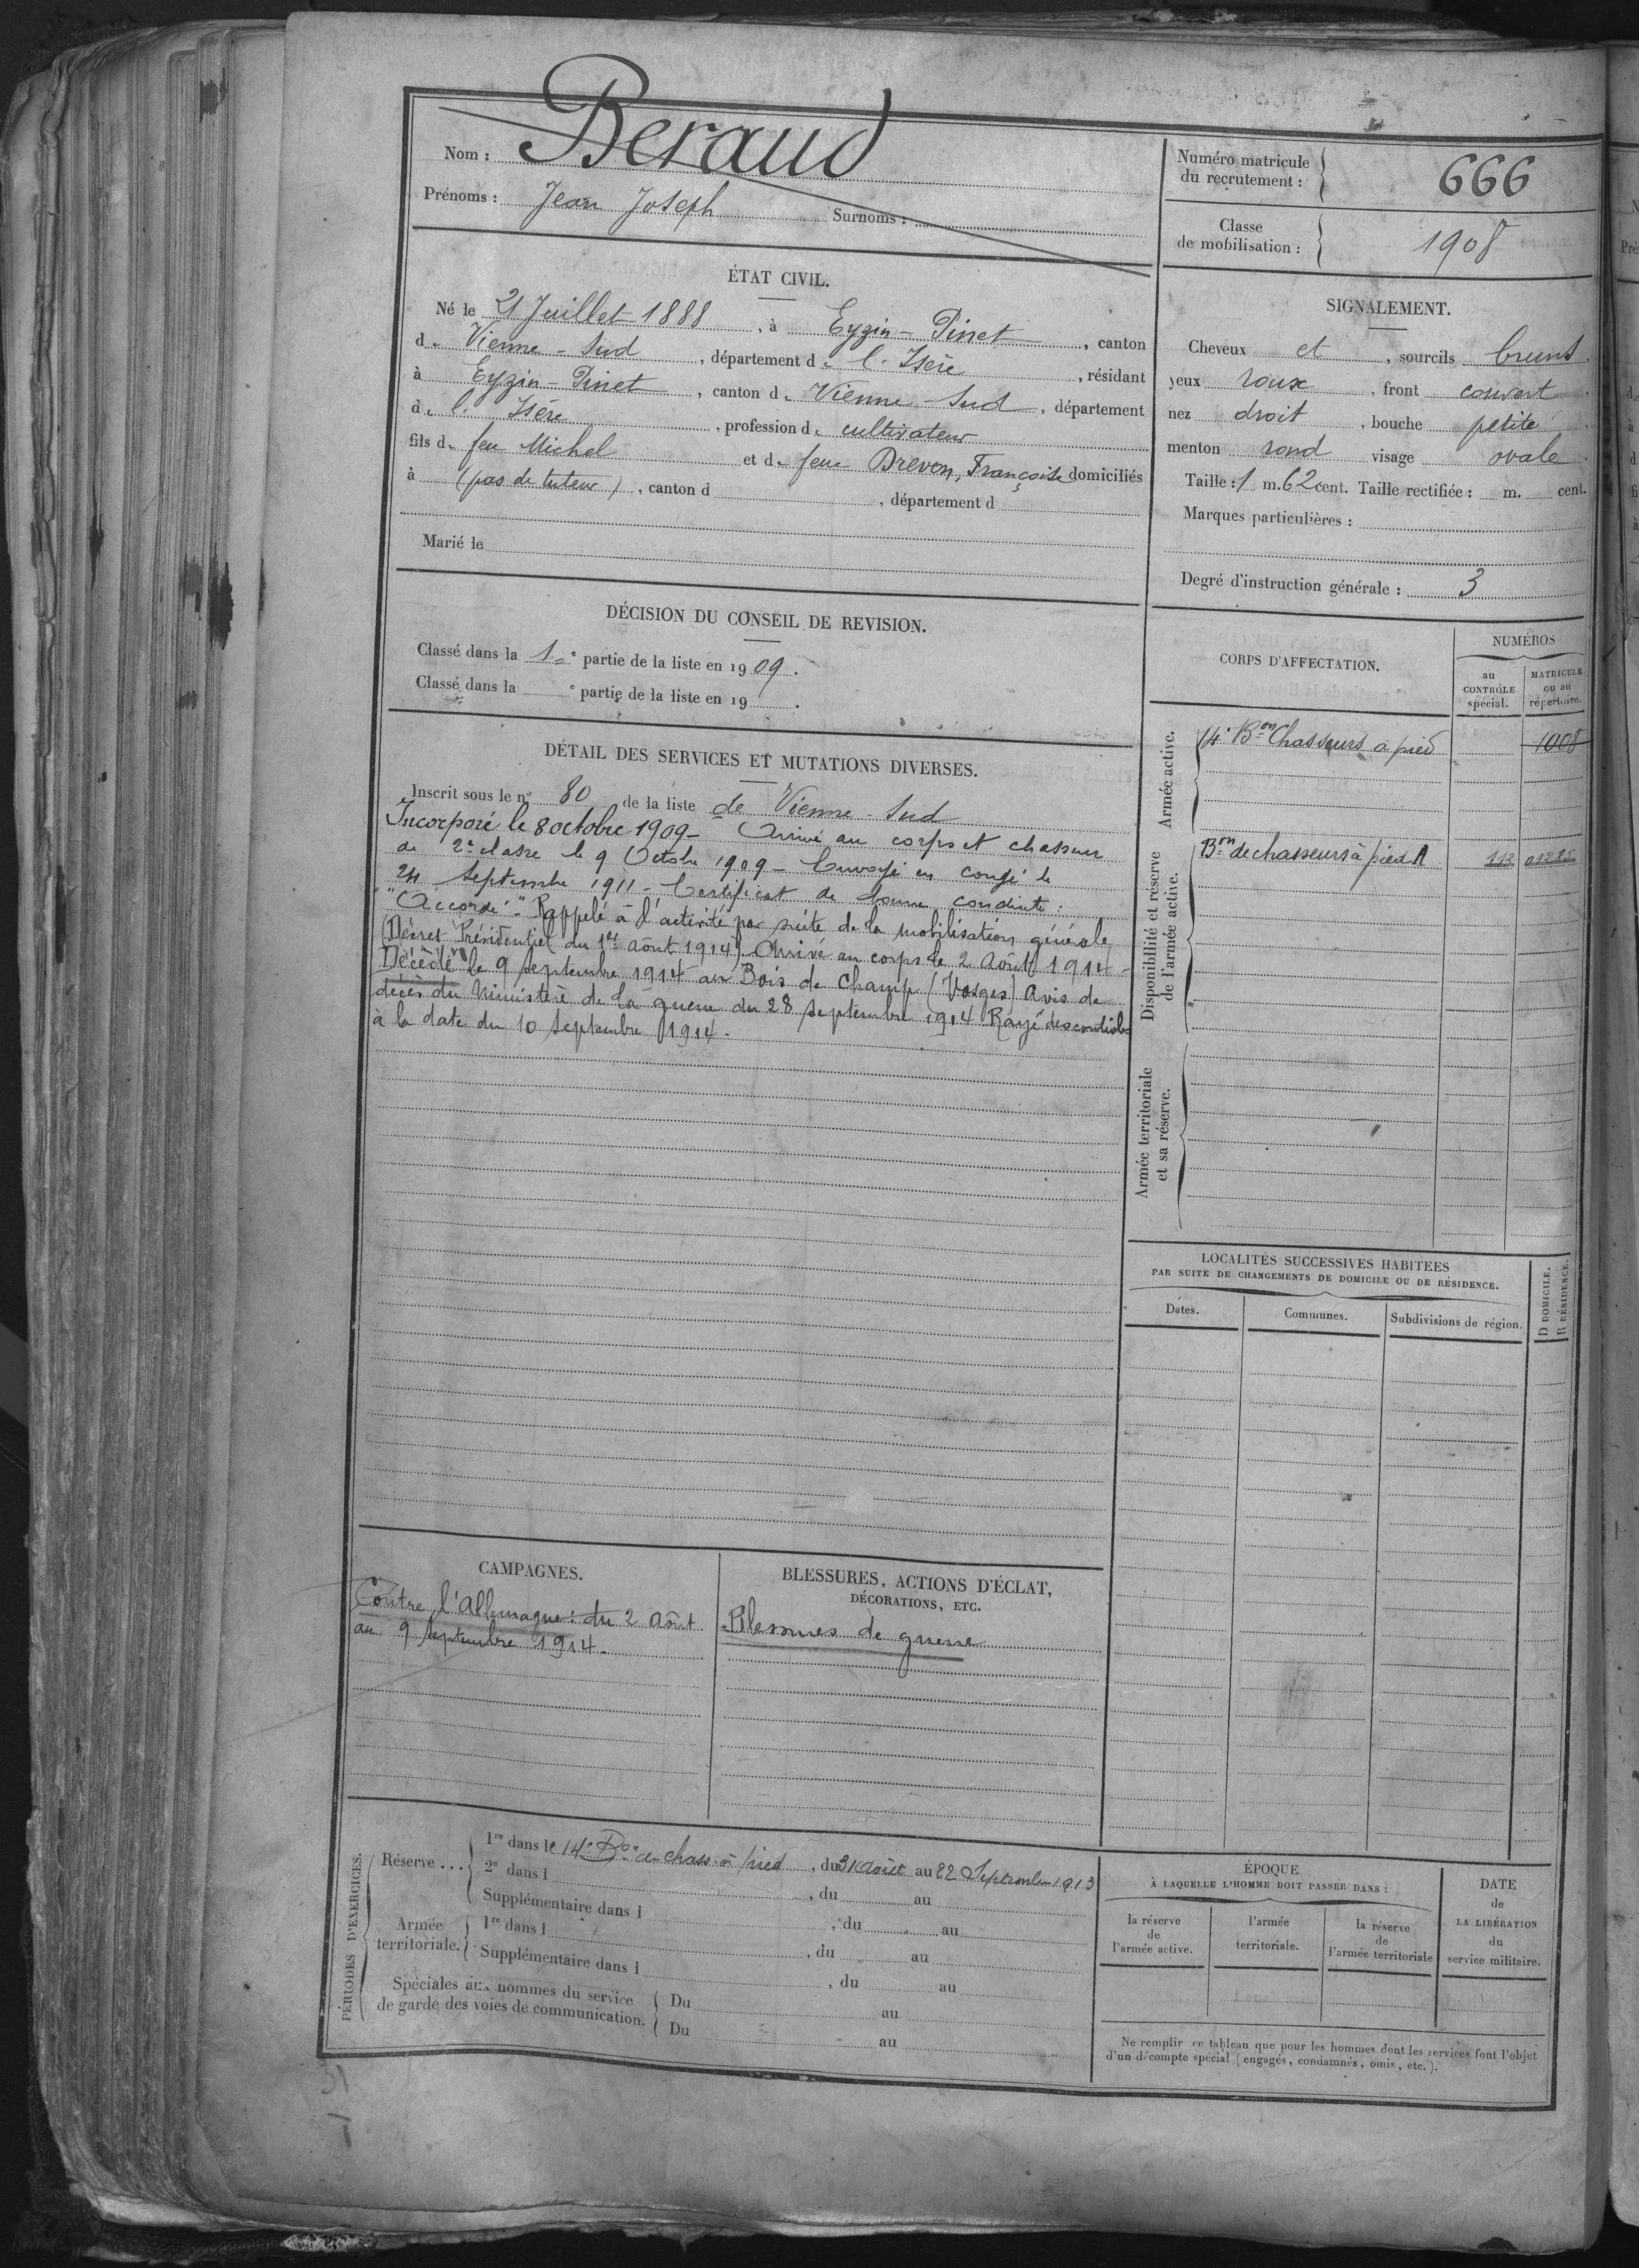 Nom : Beraud
Prénoms : Jean Joseph Surnoms :
Numéro matricule
du recrutement :
666
Classe
de mobilisation :
1908
ÉTAT CIVIL.
Né le 21 Juillet 1888, à Eyzin-Pinet, canton
de Vienne-Sud, département de l'Isère, résidant
à Eyzin-Pinet, canton de Vienne-Sud, département
de l'Isère, profession de cultivateur
fils de feu Michel et de feue Brevon, Françoise domiciliés
à (pas de tuteur), canton d , département d
Marié le
SIGNALEMENT.
Cheveux et , sourcils bruns
yeux roux , front couvert
nez droit , bouche petite
menton rond visage ovale.
Taille : 1 m. 62 cent. Taille rectifiée : m. cent.
Marques particulières :
Degré d'instruction générale : 3
DÉCISION DU CONSEIL DE REVISION.
Classé dans la 1e partie de la liste en 1909.
Classé dans la e partie de la liste en 19 .
DÉTAIL DES SERVICES ET MUTATIONS DIVERSES.
Inscrit sous le no 80 de la liste de Vienne-Sud
Incorporé le 8 octobre 1909 - Arrivé au corps et chasseur
de 2e classe le 9 Octobre 1909 - Envoyé en congé le
24 Septembre 1911 - Certificat de bonne conduite :
"Accordé". Rappelé à l'activité par suite de la mobilisation générale
(Décret Présidentiel du 1er août 1914) - Arrivé au corps le 2 Août 1914 -
Décédé le 9 Septembre 1914 au Bois de Champ (Vosges) Avis de
décès du Ministère de la guerre du 28 septembre 1914 Rayé des contrôles
à la date du 10 Septembre 1914.
CORPS D'AFFECTATION.
NUMÉROS
au
CONTRÔLE
spécial.
MATRICULE
ou au
répertoire.
Armée active.
14e Bon Chasseurs à pied 1008
Disponibilité et réserve
de l'armée active.
Bon de chasseurs à pied A 113 01285
Armée territoriale
et sa réserve.
LOCALITÉS SUCCESSIVES HABITÉES
PAR SUITE DE CHANGEMENTS DE DOMICILE OU DE RÉSIDENCE.
Dates.
Communes.
Subdivisions de région.
D DOMICILE.
R RÉSIDENCE.
CAMPAGNES.
Contre l'Allemagne : du 2 Août
au 9 Septembre 1914.
BLESSURES, ACTIONS D'ÉCLAT,
DÉCORATIONS, ETC.
Blessures de guerre
PÉRIODES D'EXERCICES.
Réserve ...
1re dans le 14e Bon de chass. à pied, du 31 Août au 22 Septembre 1913
2e dans l , du au
Supplémentaire dans l , du au
Armée
territoriale.
1re dans l , du au
Supplémentaire dans l , du au
Spéciales aux hommes du service
de garde des voies de communication.
Du au
Du au
ÉPOQUE
À LAQUELLE L'HOMME DOIT PASSER DANS :
la réserve
de
l'armée active.
l'armée
territoriale.
la réserve
de
l'armée territoriale
DATE
de
LA LIBÉRATION
du
service militaire.
Ne remplir ce tableau que pour les hommes dont les services font l'objet
d'un décompte spécial (engagés, condamnés, omis, etc.).